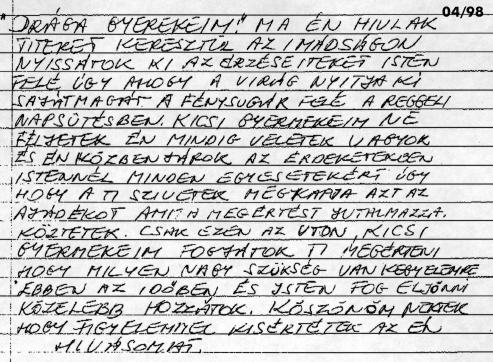 04/98
"DRÁGA GYEREKEIM!" MA ÉN HIVLAK
TITEKET KERESZTÜL AZ IMÁDSÁGON
NYISSÁTOK KI AZ ÉRZÉSEITEKET ISTEN
FELÉ ÚGY AHOGY A VIRÁG NYITJA KI
SAJÁTMAGÁT A FÉNYSUGÁR FELÉ A REGGELI
NAPSÜTÉSBEN. KICSI GYERMEKEIM NE
FÉLJETEK ÉN MINDIG VELETEK VAGYOK
ÉS ÉN KÖZBENJÁROK AZ ÉRDEKETEKBEN
ISTENNÉL MINDEN EGYESETEKÉRT ÚGY
HOGY A TI SZIVETEK MEGKAPJA AZT AZ
AJÁDÉKOT AMIT A MEGÉRTÉST JUTALMAZZA.
KÖZTETEK. CSAK EZEN AZ UTON, KICSI
GYERMEKEIM FOGJÁTOK TI MEGÉRTENI
HOGY MILYEN NAGY SZÜKSÉG VAN KEGYELEMRE
EBBEN AZ IDŐBEN ÉS ISTEN FOG ELJÖNNI
KÖZELEBB HOZZÁTOK. KÖSZÖNÖM NEKTEK
HOGY FIGYELEMMEL KISÉRTÉTEK AZ ÉN
HIVÁSOMAT.